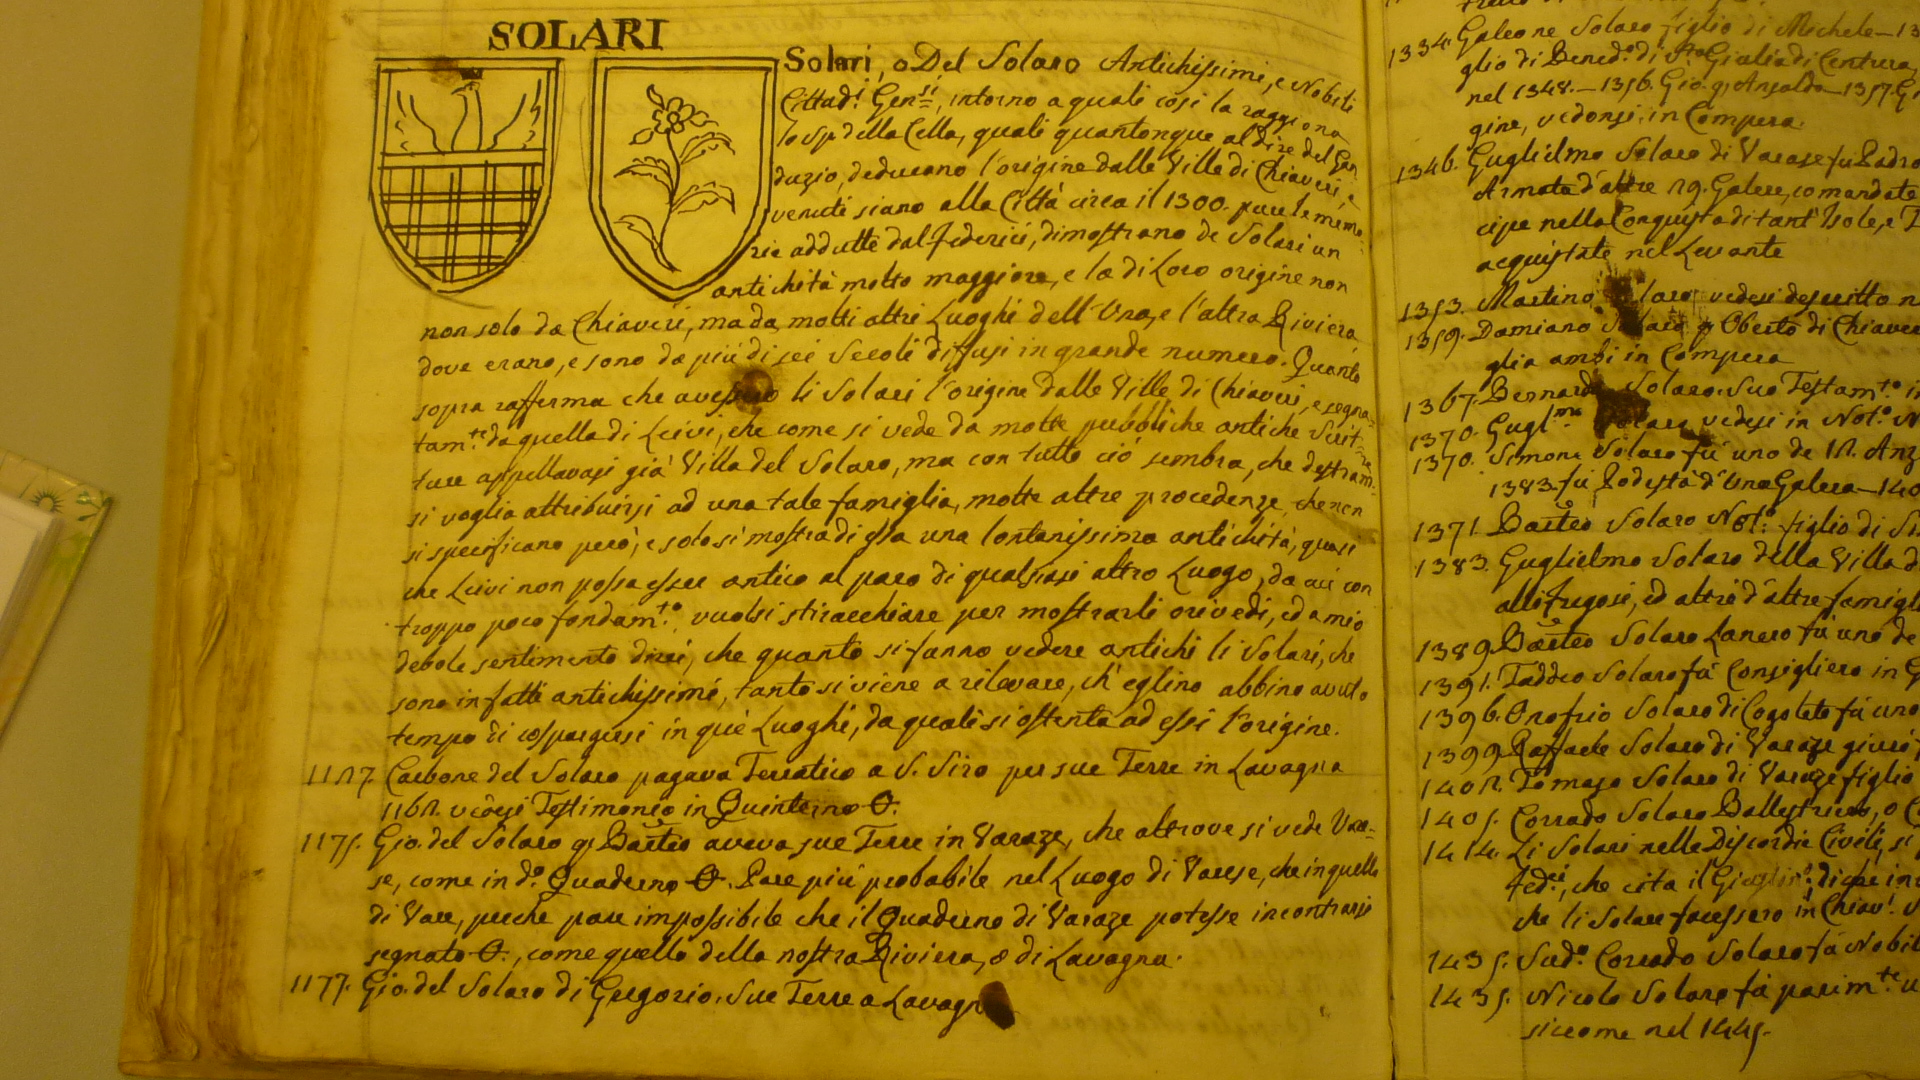 SOLARI
Solari, o Del Solaro Antichissimi, e Nobili
Cittad.i Gen.si, intorno a quali così la raggiona
lo Sp. della Cella, quali quantonque al dire del Gan
duzio, deducano l'origine dalle Ville di Chiaveri,
venuti siano alla Città circa il 1300. pure le memo
rie addutte dal Federici, dimostrano de Solari un
antichità molto maggiore, e la di Loro origine non
non solo da Chiaveri, ma da molti altri Luoghi dell'Una, e l'altra Riviera
dove erano, e sono da più di sei Secoli diffusi in grande numero. Quanto
sopra rafferma che avessero li Solari l'origine dalle Ville di Chiaveri, e segna-
tam.te da quella di Leivi, che come si vede da molte pubbliche antiche Scrit
ture appellavasi già Villa del Solaro, ma con tutto ciò sembra, che
si voglia attribuirsi ad una tale famiglia, molte altre procedenze, che non
si specificano però, e solo si mostra di essa una lontanissima antichità, quasi
che Leivi non possa esser antico al paro di qualsiasi altro Luogo, da cui con
troppo poco fondam.to vuolsi stiracchiare per mostrarli orivedi, ed a mio
debole sentimento direi, che quanto si fanno vedere antichi li Solari, che
sono in fatti antichissimi, tanto si viene a rilevare, ch'eglino abbino avuto
tempo di cospargersi in què Luoghi, da quali si ostenta ad essi l'origine.
Carbone del Solaro pagava Terratico a S. Siro per sue Terre in Lavagna
vedesi Testimonio in Quinterno O.
1175. Gio. del Solaro q. Barteo aveva sue Terre in Varaze, che altrove si vede Vare-
se, come in d.o Quaderno O. Pare più probabile nel Luogo di Varese, che in quello
di Vare, perchè pare impossibile che il Quaderno di Varaze potesse incontrarsi
segnato O., come quello della nostra Riviera, o di Lavagna.
1177. Gio. del Solaro di Gregorio. Sue Terre a Lavagn
1334. Galeone Solaro figlio di Michele
glio di Bened.o di
nel 1348. — 1356. Gio. q. Ansaldo — 1357.
gine, vedonsi in Compera.
1346. Guglielmo Solaro di Varaze fù Padro
Armata d'altre 29. Galere, comandate
cipe nella Conquista di tant'Isole, e
acquistate nel Levante
1353. Martino vedesi descritto
1359. Damiano Solaro q. Oberto di Chiaveri
glia ambi in Compera
1367. Bernardo Solaro. Suo Testam.to
1370. Gugl.mo Solaro vedesi in Not.o
1370. Simone Solaro fù uno de 12. Anz
1383. fù Podestà d'Una Galera
1371. Barteo Solaro Not.o figlio di
1383. Guglielmo Solaro della Villa
alli Fregosi, ed altri d'altre famigl
1389. Barteo Solaro Lanero fù uno de
1391. Taddeo Solaro fù Consigliero in
1396. Onofrio Solaro di Cogoleto fù uno
1399. Raffaele Solaro di Varaze giurò
1402. Tomaso Solaro di Varaze figlio
1405. Corrado Solaro
1414. Li Solari nelle Discordie Civili, si
che cita il
che li Solari facessero in Chiav.i
1435. Sud.o Corrado Solaro fù Nobil
1435. Nicolo Solaro fù parim.te
siccome nel 1445.